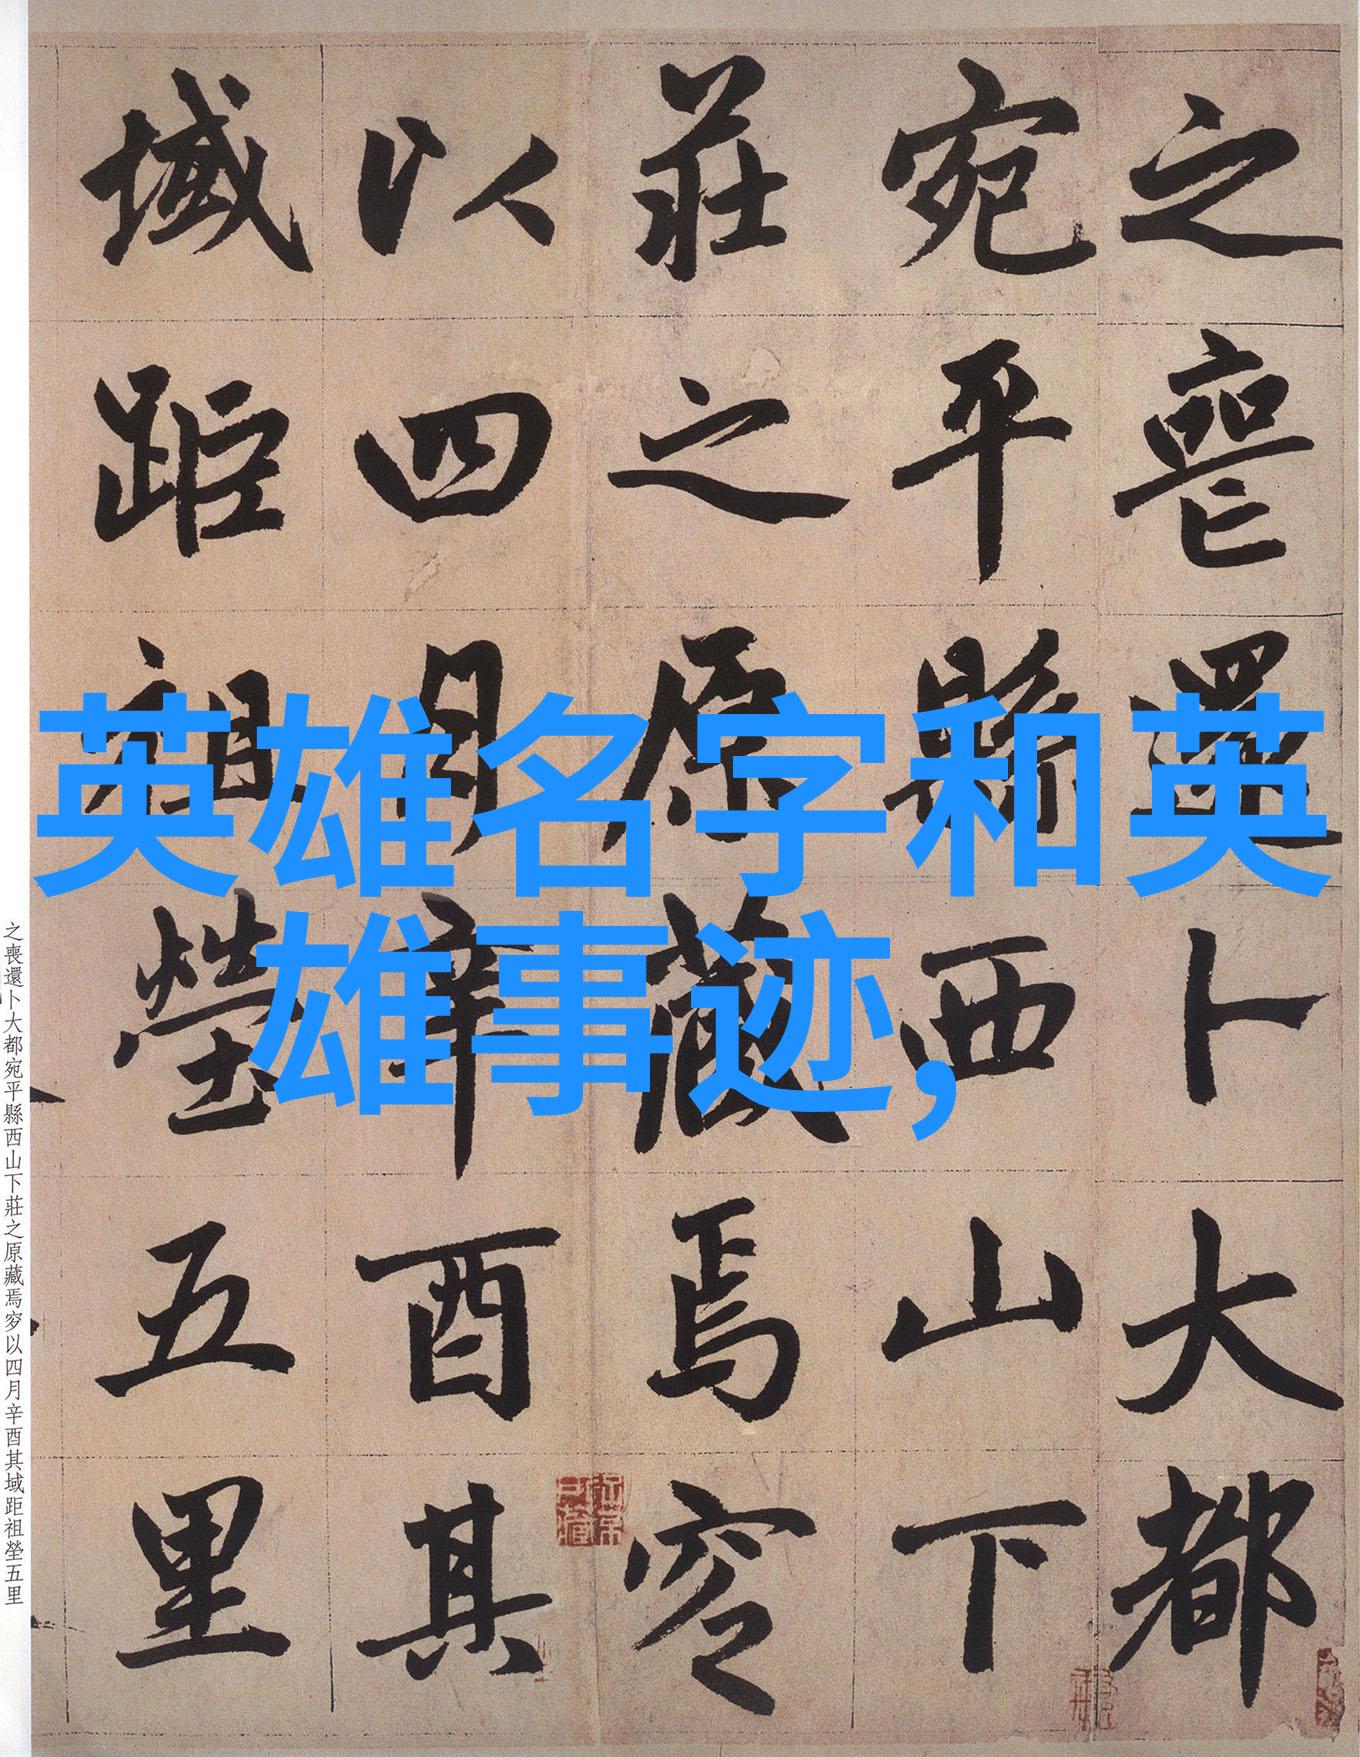 英雄名字和英
雄事迹,
之喪還卜大都
宛平縣西山下
莊之原藏焉窆
以四月辛酉其
域距祖塋五里
之喪還卜大都宛平縣西山下莊之原藏焉穸以四月辛酉其域距祖塋五里